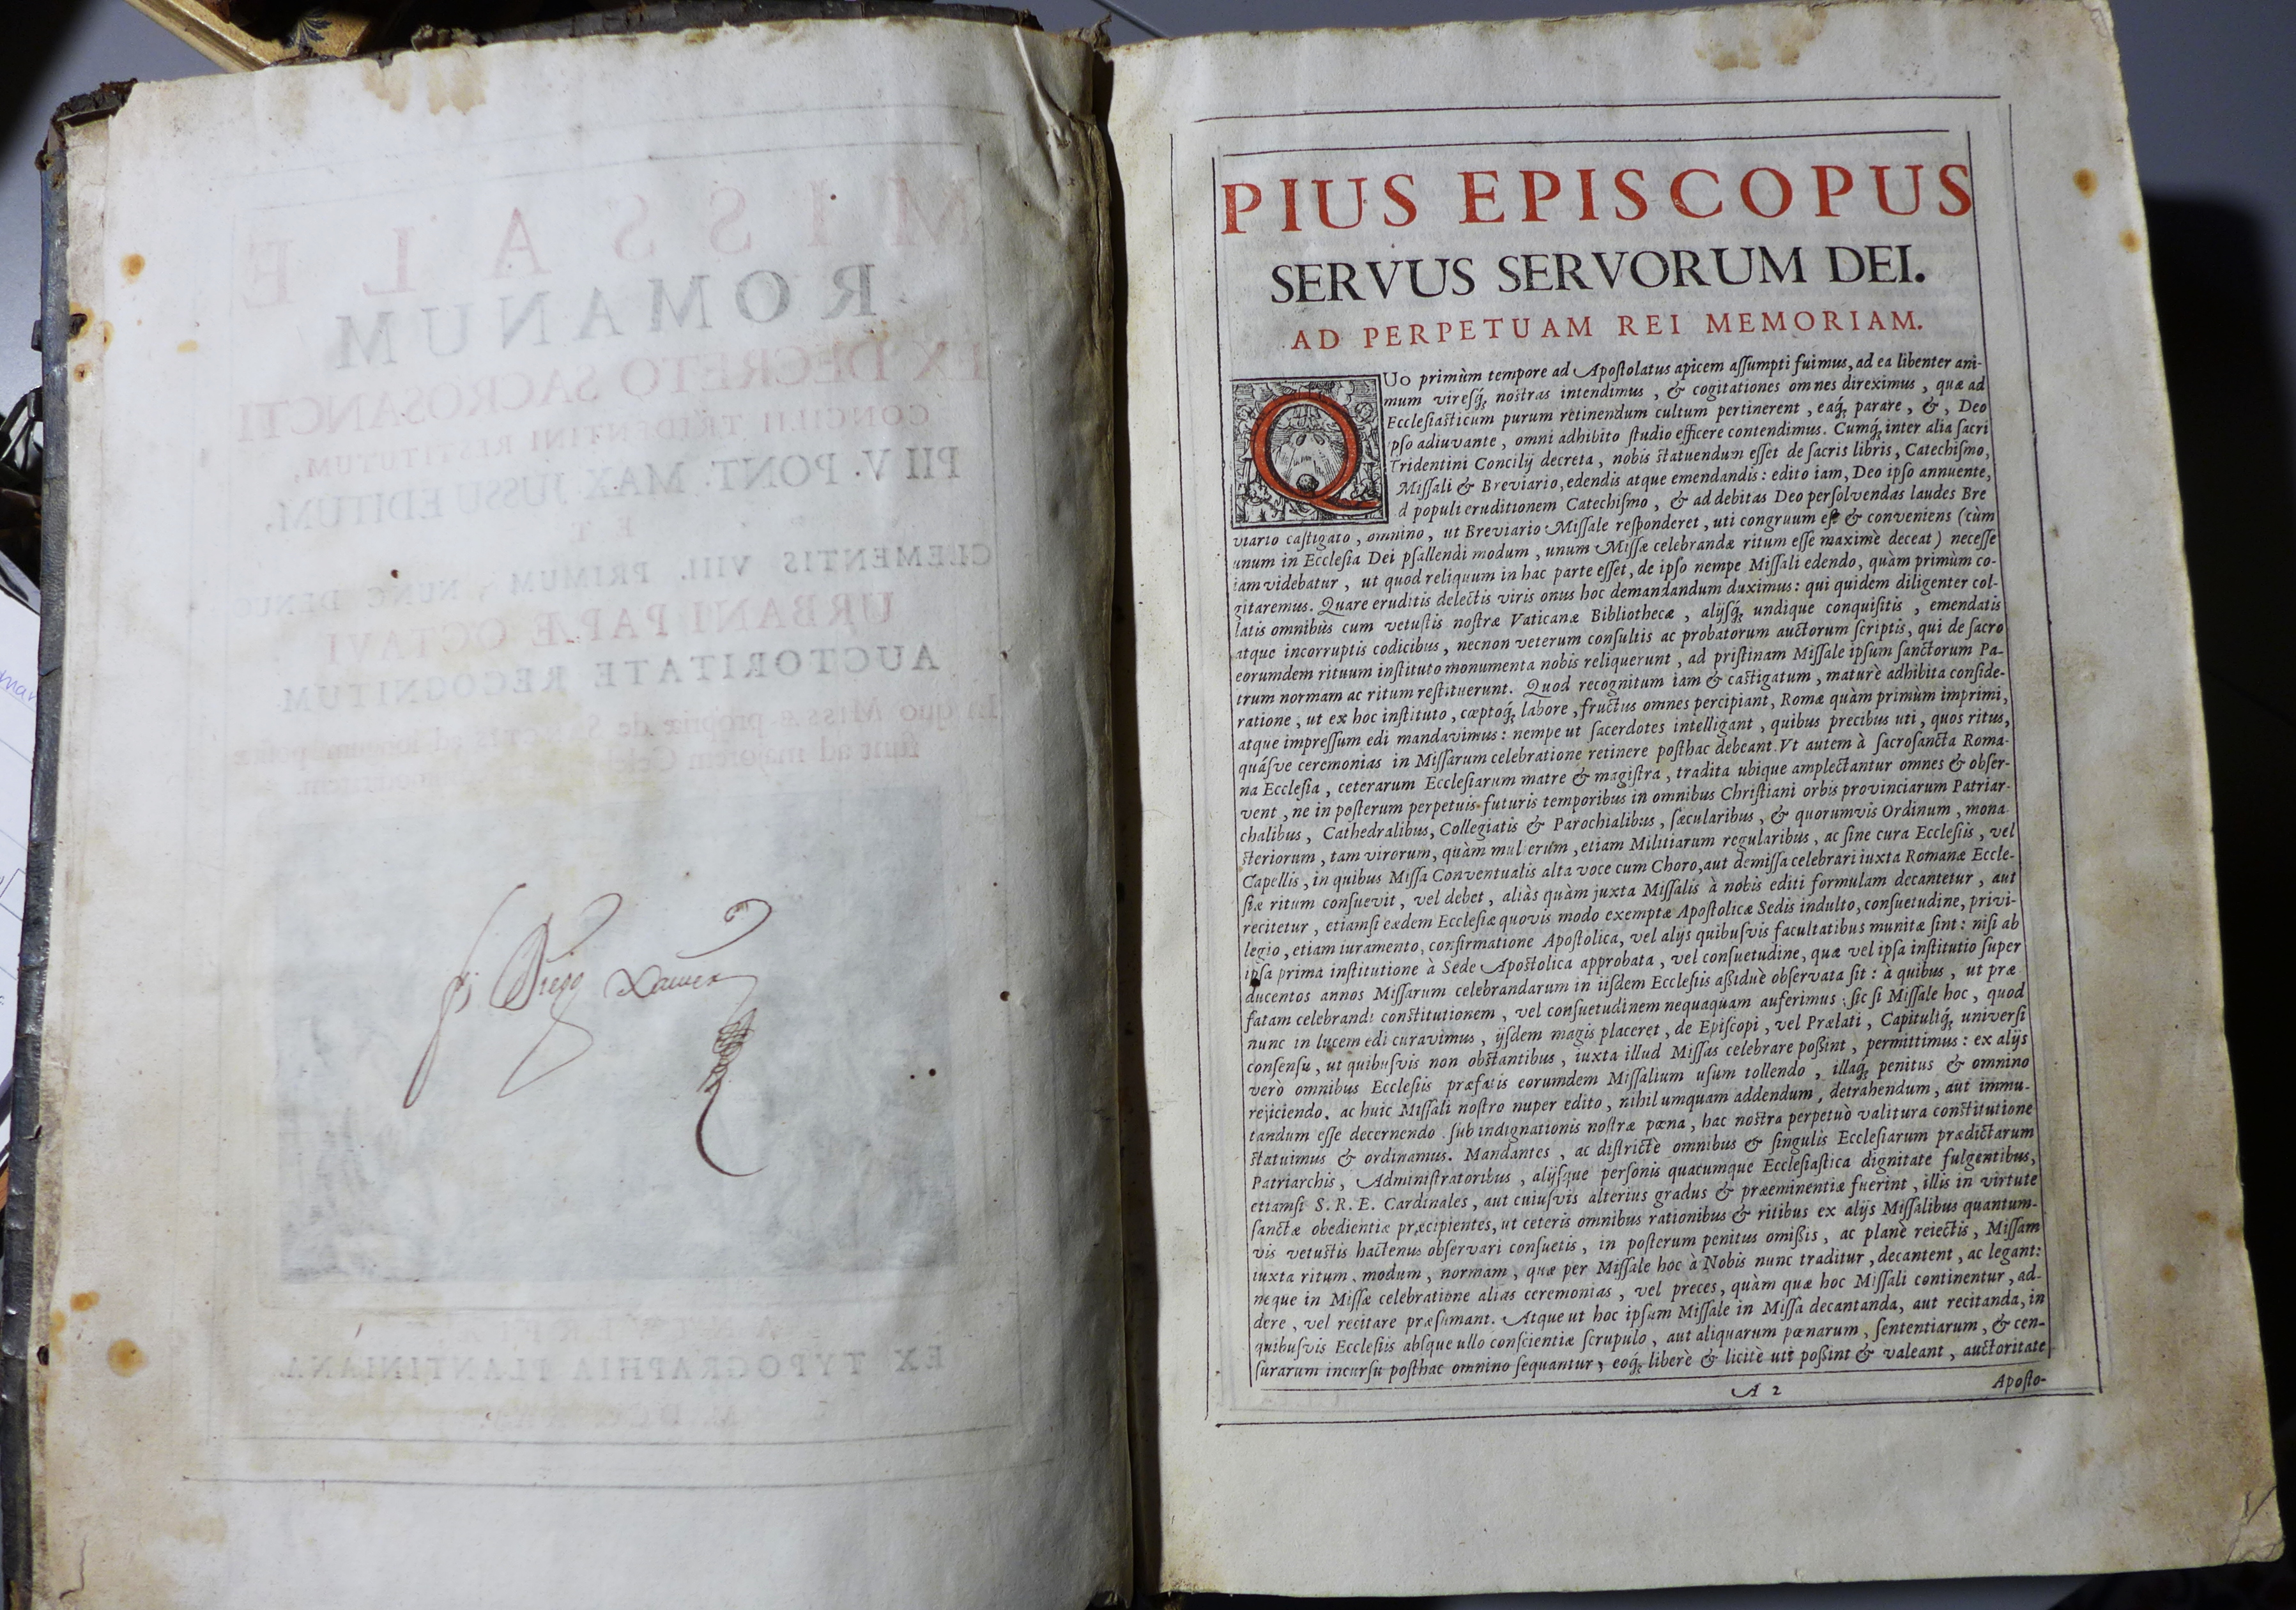 MISSALE
ROMANUM
EX DECRETO SACROSANCTI
CONCILII TRIDENTINI RESTITUTUM,
PII V. PONT. MAX. JUSSU EDITUM,
ET
CLEMENTIS VIII. PRIMUM, NUNC DENUO
URBANI PAPÆ OCTAVI
AUCTORITATE RECOGNITUM
In quo Missæ propriæ de
sunt ad majorem
Diego Xavier
EX TYPOGRAPHIA PLANTINIANA
PIUS EPISCOPUS
SERVUS SERVORUM DEI.
AD PERPETUAM REI MEMORIAM.
QUo primùm tempore ad Apostolatus apicem aſſumpti fuimus, ad ea libenter ani-
mum viresq́; nostras intendimus, & cogitationes omnes direximus, quæ ad
Eccleſiasticum purum retinendum cultum pertinerent, eaq́; parare, &, Deo
pſo adiuvante, omni adhibito ſtudio efficere contendimus. Cumq́; inter alia ſacri
Tridentini Concilij decreta, nobis statuendum eſſet de ſacris libris, Catechiſmo,
Miſſali & Breviario, edendis atque emendandis: edito iam, Deo ipſo annuente,
d populi eruditionem Catechiſmo, & ad debitas Deo perſolvendas laudes Bre
viario caſtigato, omnino, ut Breviario Miſſale reſponderet, uti congruum eſt & conveniens (cùm
unum in Eccleſia Dei pſallendi modum, unum Miſſæ celebrandæ ritum eſſe maximè deceat) neceſſe
iam videbatur, ut quod reliquum in hac parte eſſet, de ipſo nempe Miſſali edendo, quàm primùm co-
gitaremus. Quare eruditis delectis viris onus hoc demandandum duximus: qui quidem diligenter col-
latis omnibus cum vetuſtis noſtræ Vaticanæ Bibliothecæ, alijſq́; undique conquiſitis, emendatis
atque incorruptis codicibus, necnon veterum conſultis ac probatorum auctorum ſcriptis, qui de ſacro
eorumdem rituum inſtituto monumenta nobis reliquerunt, ad priſtinam Miſſale ipſum ſanctorum Pa-
trum normam ac ritum reſtituerunt. Quod recognitum iam & caſtigatum, maturè adhibita conſide-
ratione, ut ex hoc inſtituto, cœptoq́; labore, fructus omnes percipiant, Romæ quàm primùm imprimi,
atque impreſſum edi mandavimus: nempe ut ſacerdotes intelligant, quibus precibus uti, quos ritus,
quáſve ceremonias in Miſſarum celebratione retinere poſthac debeant. Vt autem à ſacroſancta Roma-
na Eccleſia, ceterarum Eccleſiarum matre & magiſtra, tradita ubique amplectantur omnes & obſer-
vent, ne in poſterum perpetuis futuris temporibus in omnibus Chriſtiani orbis provinciarum Patriar-
chalibus, Cathedralibus, Collegiatis & Parochialibus, ſæcularibus, & quorumvis Ordinum, mona
ſteriorum, tam virorum, quàm mulierum, etiam Militiarum regularibus, ac ſine cura Eccleſiis, vel
Capellis, in quibus Miſſa Conventualis alta voce cum Choro, aut demiſſa celebrari iuxta Romanæ Eccle-
ſiæ ritum conſuevit, vel debet, aliàs quàm juxta Miſſalis à nobis editi formulam decantetur, aut
recitetur, etiamſi eædem Eccleſiæ quovis modo exemptæ Apoſtolicæ Sedis indulto, conſuetudine, privi-
legio, etiam iuramento, confirmatione Apoſtolica, vel alijs quibuſvis facultatibus munitæ ſint: niſi ab
ipſa prima inſtitutione à Sede Apoſtolica approbata, vel conſuetudine, quæ vel ipſa inſtitutio ſuper
ducentos annos Miſſarum celebrandarum in iiſdem Eccleſiis aſſiduè obſervata ſit: à quibus, ut præ
fatam celebrandi conſtitutionem, vel conſuetudinem nequaquam auferimus: ſic ſi Miſſale hoc, quod
nunc in lucem edi curavimus, ijſdem magis placeret, de Epiſcopi, vel Prælati, Capituliq́; univerſi
conſenſu, ut quibuſvis non obſtantibus, iuxta illud Miſſas celebrare poſſint, permittimus: ex alijs
verò omnibus Eccleſiis præfatis eorumdem Miſſalium uſum tollendo, illaq́; penitus & omnino
rejiciendo, ac huic Miſſali noſtro nuper edito, nihil umquam addendum, detrahendum, aut immu-
tandum eſſe decernendo ſub indignationis noſtræ pœna, hac noſtra perpetuò valitura conſtitutione
ſtatuimus & ordinamus. Mandantes, ac diſtrictè omnibus & ſingulis Eccleſiarum prædictarum
Patriarchis, Adminiſtratoribus, alijſque perſonis quacumque Eccleſiaſtica dignitate fulgentibus,
etiamſi S. R. E. Cardinales, aut cuiuſvis alterius gradus & præeminentiæ fuerint, illis in virtute
ſanctæ obedientiæ præcipientes, ut ceteris omnibus rationibus & ritibus ex alijs Miſſalibus quantum-
vis vetuſtis hactenus obſervari conſuetis, in poſterum penitus omiſſis, ac planè reiectis, Miſſam
iuxta ritum, modum, normam, quæ per Miſſale hoc à Nobis nunc traditur, decantent, ac legant:
neque in Miſſæ celebratione alias ceremonias, vel preces, quàm quæ hoc Miſſali continentur, ad-
dere, vel recitare præſumant. Atque ut hoc ipſum Miſſale in Miſſa decantanda, aut recitanda, in
quibuſvis Eccleſiis abſque ullo conſcientiæ ſcrupulo, aut aliquarum pœnarum, ſententiarum, & cen-
ſurarum incurſu poſthac omnino ſequantur, eoq́; liberè & licitè uti poſſint & valeant, auctoritate
A 2
Apoſto-